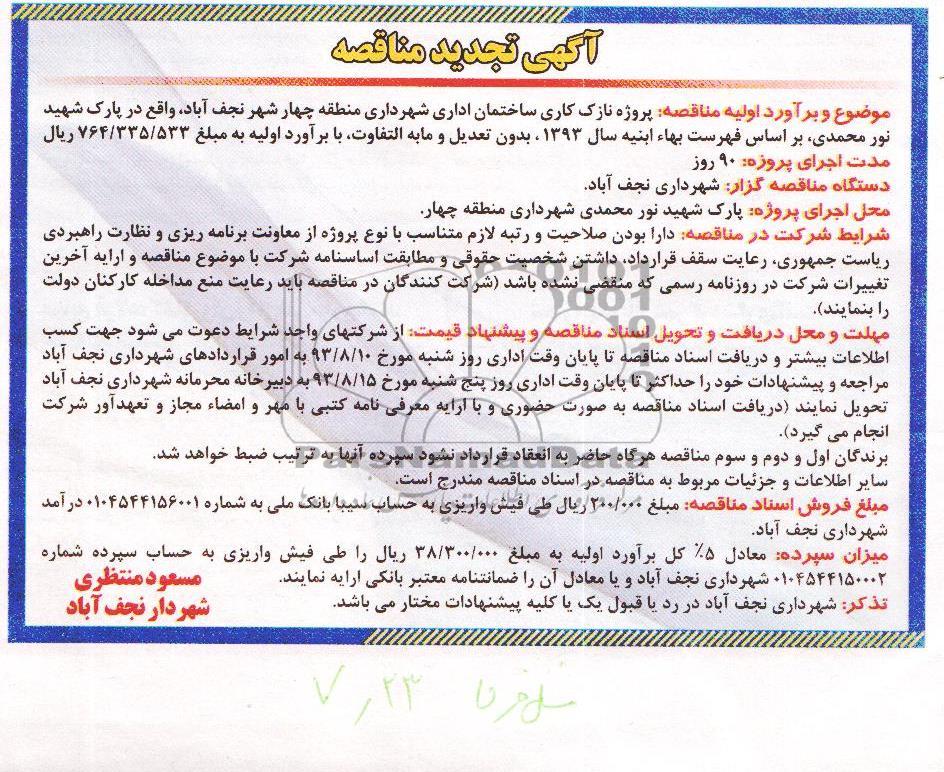 آگهی تجدید مناقصه
موضوع و برآورد اولیه مناقصه: پروژه نازک کاری ساختمان اداری شهرداری منطقه چهار شهر نجف آباد، واقع در پارک شهید
نور محمدی، بر اساس فهرست بهاء ابنیه سال ۱۳۹۳ ، بدون تعدیل و مابه التفاوت، با برآورد اولیه به مبلغ ۷۶۴/۳۳۵/۵۳۳ ریال
مدت اجرای پروژه: ۹۰ روز
دستگاه مناقصه گزار: شهرداری نجف آباد.
محل اجرای پروژه: پارک شهید نور محمدی شهرداری منطقه چهار.
شرایط شرکت در مناقصه: دارا بودن صلاحیت و رتبه لازم متناسب با نوع پروژه از معاونت برنامه ریزی و نظارت راهبردی
ریاست جمهوری، رعایت سقف قرارداد، داشتن شخصیت حقوقی و مطابقت اساسنامه شرکت با موضوع مناقصه و ارایه آخرین
تغییرات شرکت در روزنامه رسمی که منقضی نشده باشد (شرکت کنندگان در مناقصه باید رعایت منع مداخله کارکنان دولت
را بنمایند).
مهلت و محل دریافت و تحویل اسناد مناقصه و پیشنهاد قیمت: از شرکتهای واجد شرایط دعوت می شود جهت کسب
اطلاعات بیشتر و دریافت اسناد مناقصه تا پایان وقت اداری روز شنبه مورخ ۹۳/۸/۱۰ به امور قراردادهای شهرداری نجف آباد
مراجعه و پیشنهادات خود را حداکثر تا پایان وقت اداری روز پنج شنبه مورخ ۹۳/۸/۱۵ به دبیرخانه محرمانه شهرداری نجف آباد
تحویل نمایند (دریافت اسناد مناقصه به صورت حضوری و با ارایه معرفی نامه کتبی با مهر و امضاء مجاز و تعهدآور شرکت
انجام می گیرد).
برندگان اول و دوم و سوم مناقصه هرگاه حاضر به انعقاد قرارداد نشود سپرده آنها به ترتیب ضبط خواهد شد.
سایر اطلاعات و جزئیات مربوط به مناقصه در اسناد مناقصه مندرج است.
مبلغ فروش اسناد مناقصه: مبلغ ۲۰۰/۰۰۰ ریال طی فیش واریزی به حساب سیبا بانک ملی به شماره ۰۱۰۴۵۴۴۱۵۶۰۰۱ درآمد
شهرداری نجف آباد.
میزان سپرده: معادل ۵٪ کل برآورد اولیه به مبلغ ۳۸/۳۰۰/۰۰۰ ریال را طی فیش واریزی به حساب سپرده شماره
۰۱۰۴۵۴۴۱۵۰۰۰۲ شهرداری نجف آباد و یا معادل آن را ضمانتنامه معتبر بانکی ارایه نمایند.
تذکر: شهرداری نجف آباد در رد یا قبول یک یا کلیه پیشنهادات مختار می باشد.
مسعود منتظری
شهردار نجف آباد
ParsNamadData
۷ر۲۳